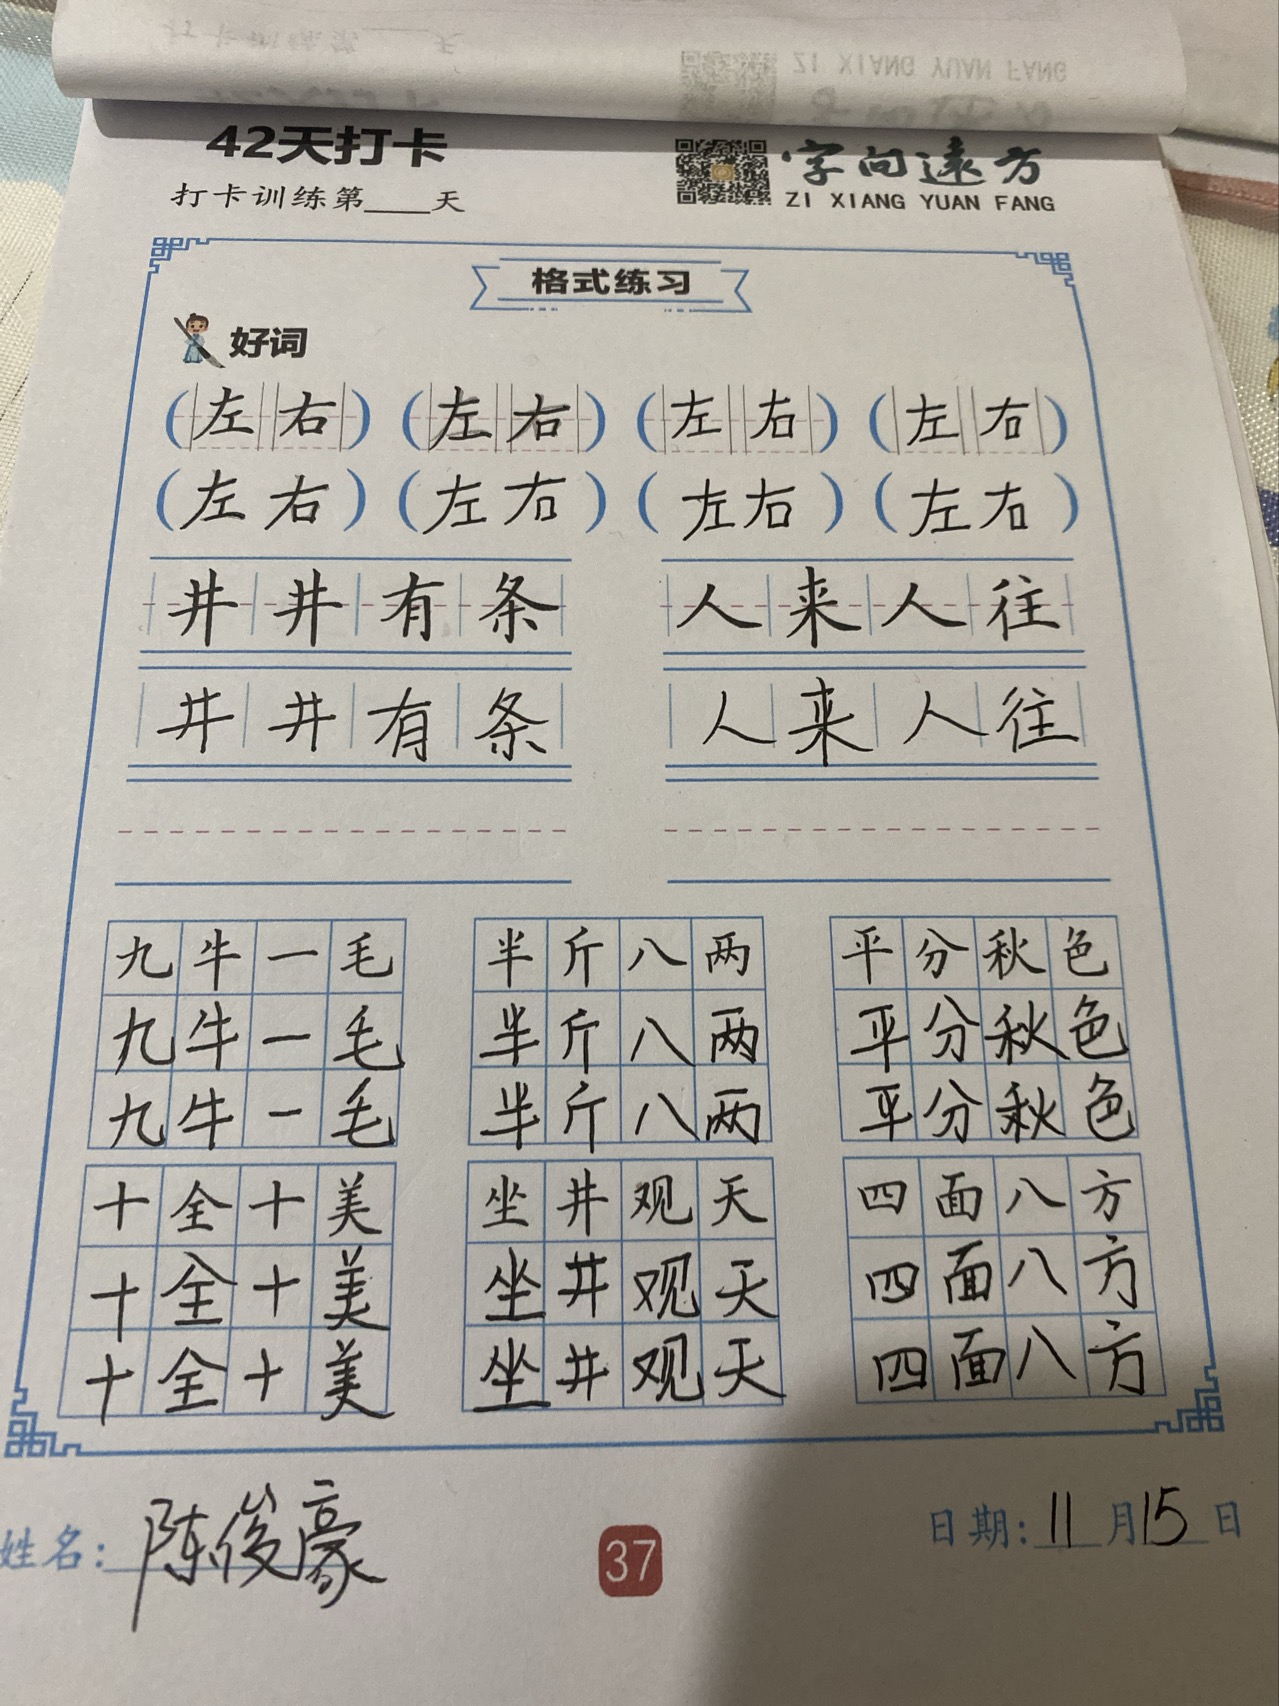 42天打卡
字向远方
打卡训练第____天
ZI XIANG YUAN FANG
格式练习
好词
(左右) (左右) (左右) (左右)
(左右) (左右) (左右) (左右)
井井有条 人来人往
井井有条 人来人往
九牛一毛 半斤八两 平分秋色
九牛一毛 半斤八两 平分秋色
九牛一毛 半斤八两 平分秋色
十全十美 坐井观天 四面八方
十全十美 坐井观天 四面八方
十全十美 坐井观天 四面八方
姓名: 陈俊豪
37
日期: 11月15日